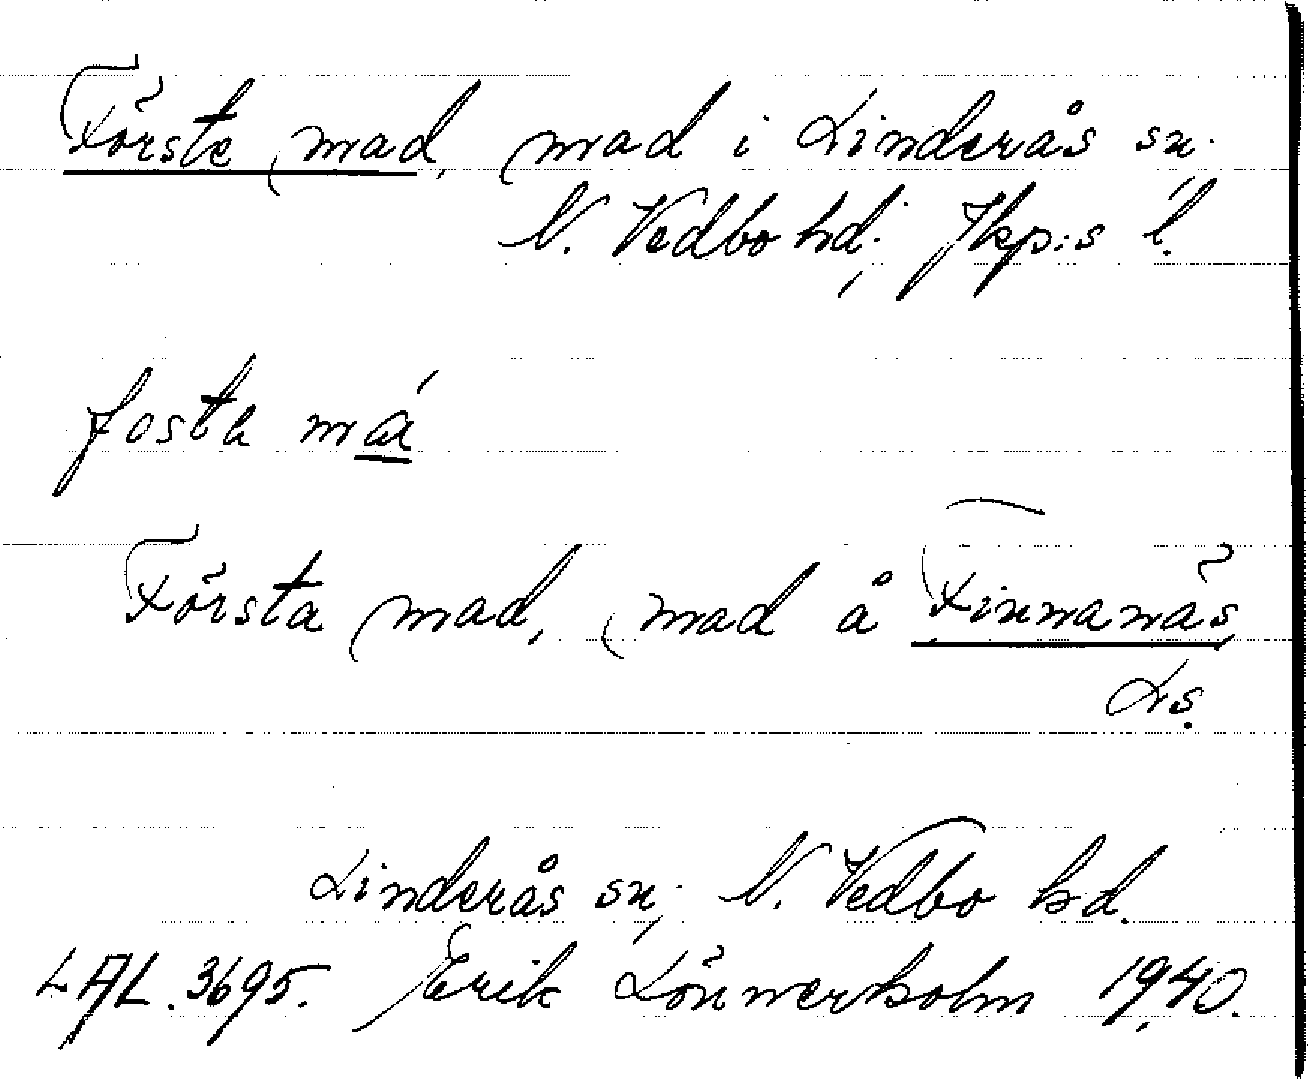 Förste mad, mad i Linderås sn.
N. Vedbo hd; Jkp:s l.
fosta má
Första mad, mad å Finnanäs,
Ls.
Linderås sn; N. Vedbo hd.
LAL. 3695. Erik Lönnerholm 1940.